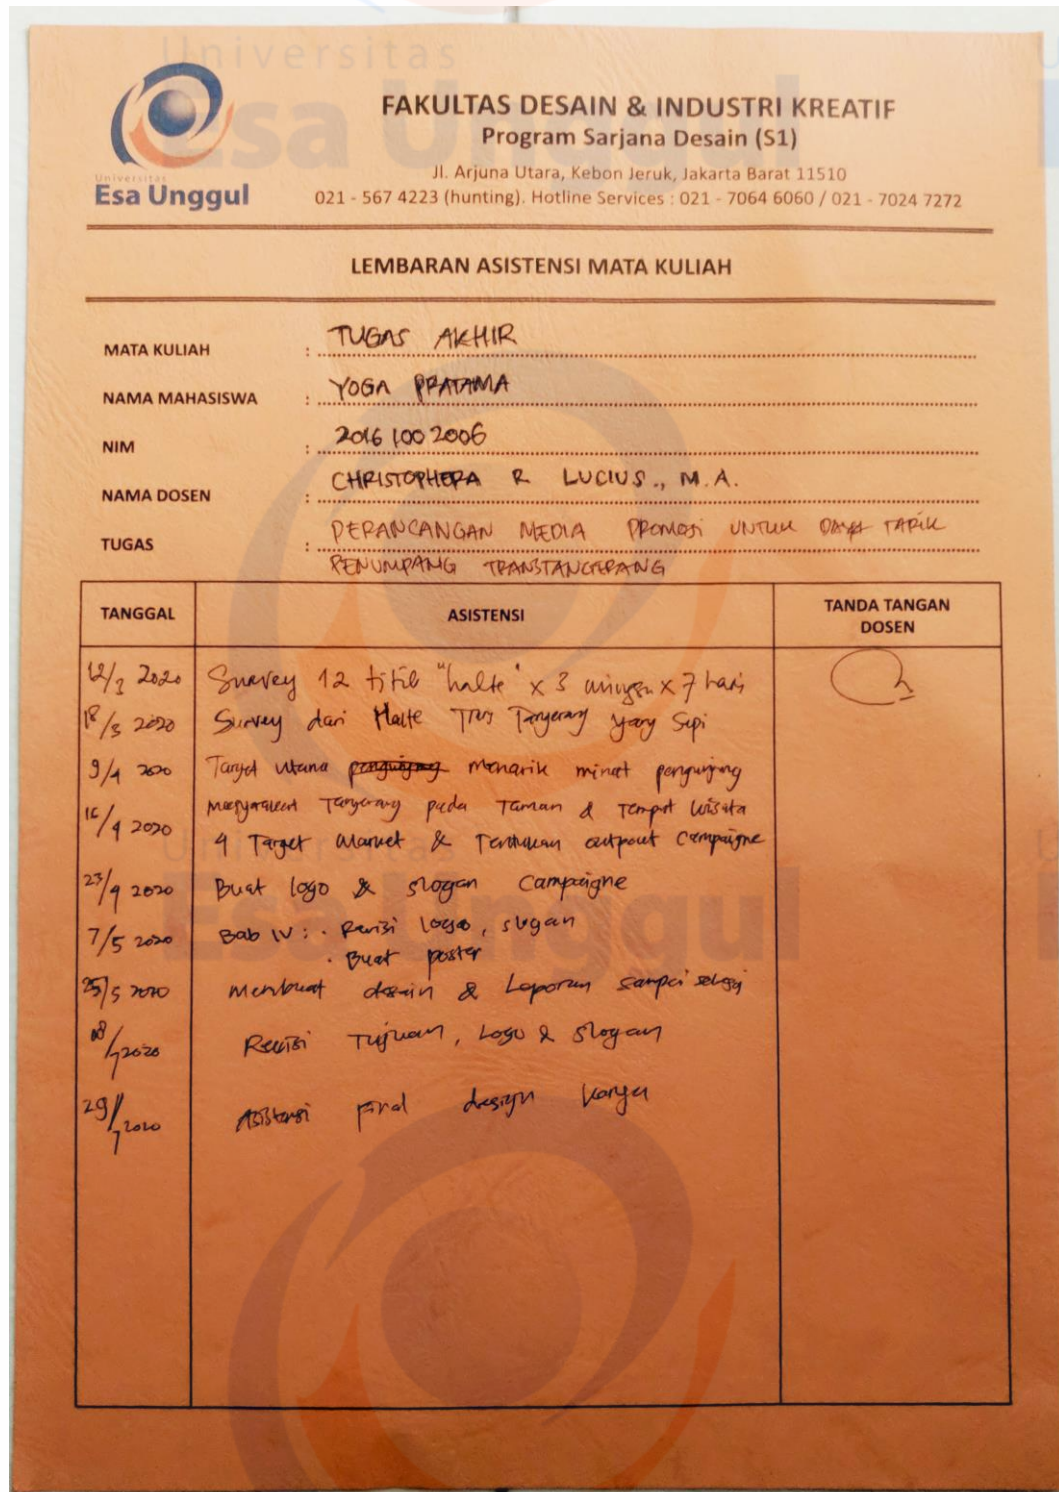 Universitas
Esa Unggul
FAKULTAS DESAIN & INDUSTRI KREATIF
Program Sarjana Desain (S1)
Jl. Arjuna Utara, Kebon Jeruk, Jakarta Barat 11510
021 - 567 4223 (hunting). Hotline Services : 021 - 7064 6060 / 021 - 7024 7272
Universitas
Esa Unggul
LEMBARAN ASISTENSI MATA KULIAH
MATA KULIAH : TUGAS AKHIR
NAMA MAHASISWA : YOGA PRATAMA
NIM : 2016 100 2006
NAMA DOSEN : CHRISTOPHERA R LUCIUS., M.A.
TUGAS : PERANCANGAN MEDIA PROMOSI UNTUK DAYA TARIK
PENUMPANG TRANSTANGERANG
TANGGAL ASISTENSI TANDA TANGAN DOSEN
12/3 2020 Survey 12 titik "halte" x 3 minggu x 7 hari
18/3 2020 Survey dari Halte Trns Tangerang yang sepi
9/4 2020 Target utama pengunjung menarik minat pengunjung
masyarakat Tangerang pada Taman & Tempat wisata
16/4 2020 4 Target Market & Tentukan outpout Campaigne
23/4 2020 Buat logo & slogan Campaigne
7/5 2020 Bab IV : · Revisi logo, slogan
· Buat poster
25/5 2020 Membuat desain & Laporan sampai selesai
/7 2020 Revisi Tujuan, Logo & Slogan
29/7 2020 Asistensi final design karya
Universitas
Esa Unggul